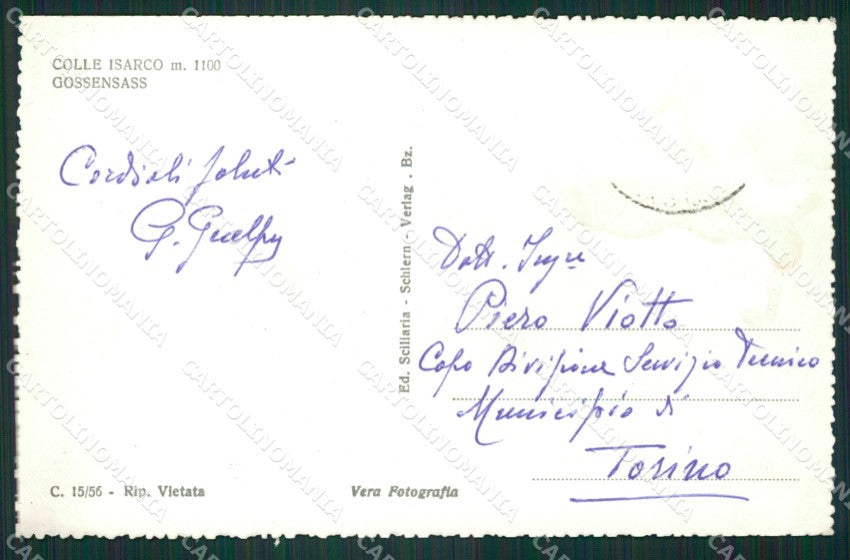 COLLE ISARCO m. 1100
GOSSENSASS
Cordiali saluti
G.
Ed. Sciliaria - Schlern - Verlag . Bz.
Dott. Ing.re
Piero Viotto
Capo Divisione Servizio Tecnico
Municipio di
Torino
C. 15/56 - Rip. Vietata
Vera Fotografia
CARTOLINOMANIA